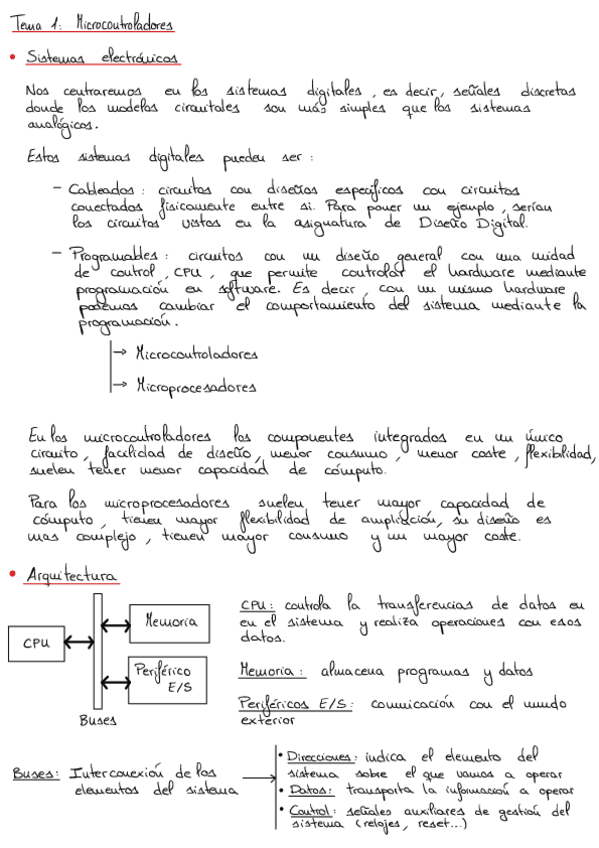 Tema 1: Microcontroladores
• Sistemas electrónicos
Nos centraremos en los sistemas digitales, es decir, señales discretas
donde los modelos circuitales son más simples que los sistemas
analógicos.
Estos sistemas digitales pueden ser:
- Cableados: circuitos con diseños específicos con circuitos
conectados físicamente entre si. Para poner un ejemplo, serían
los circuitos vistos en la asignatura de Diseño Digital.
- Programables: circuitos con un diseño general con una unidad
de control, CPU, que permite controlar el hardware mediante
programación en software. Es decir, con un mismo hardware
podemos cambiar el comportamiento del sistema mediante la
programación.
→ Microcontroladores
→ Microprocesadores
En los microcontroladores los componentes integrados en un único
circuito, facilidad de diseño, menor consumo, menor coste, flexibilidad,
suelen tener menor capacidad de cómputo.
Para los microprocesadores suelen tener mayor capacidad de
cómputo, tienen mayor flexibilidad de ampliación, su diseño es
mas complejo, tienen mayor consumo y un mayor coste.
• Arquitectura
CPU
Memoria
Periférico
E/S
Buses
CPU: controla la transferencias de datos en
en el sistema y realiza operaciones con esos
datos.
Memoria: almacena programas y datos
Periféricos E/S: comunicación con el mundo
exterior
Buses: Interconexión de los
elementos del sistema
• Direcciones: indica el elemento del
sistema sobre el que vamos a operar
• Datos: transporta la información a operar
• Control: señales auxiliares de gestión del
sistema (relojes, reset...)